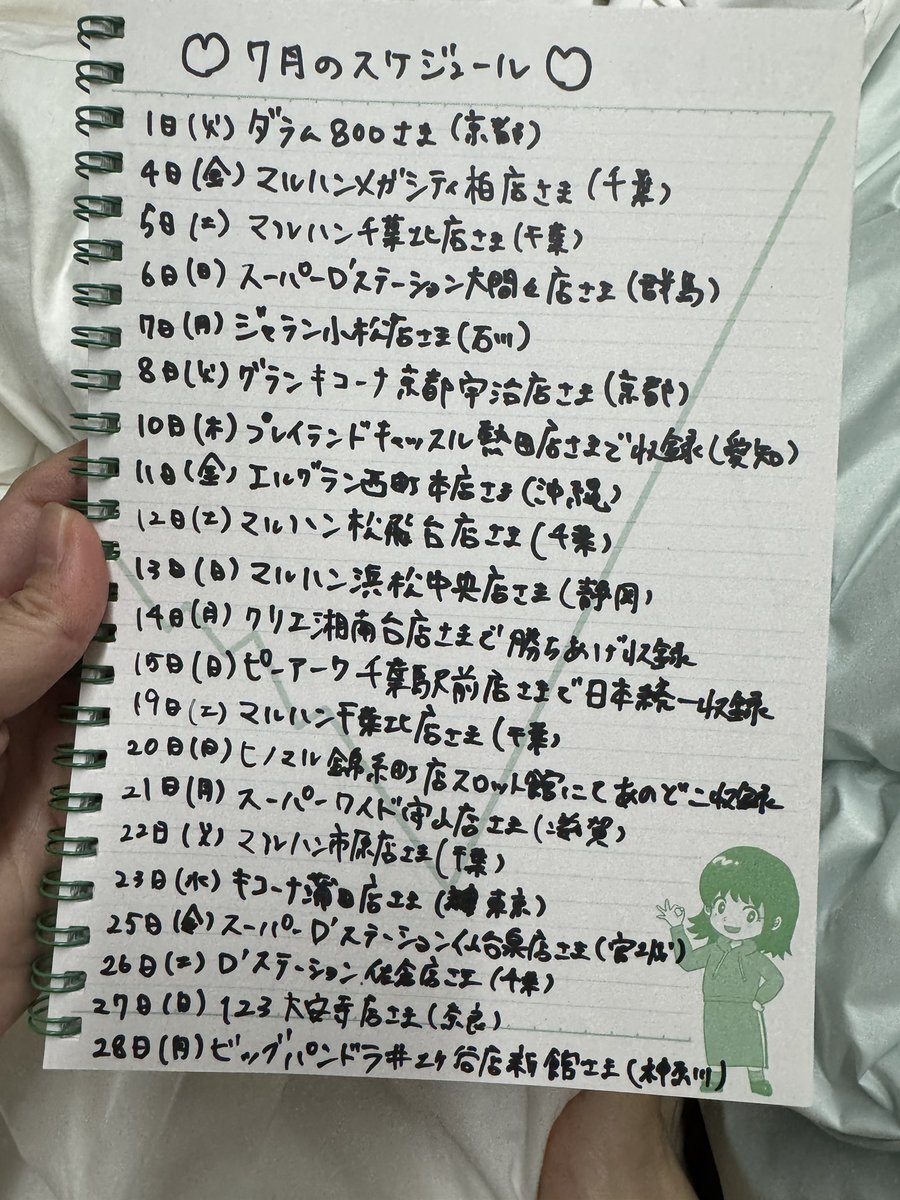 ♡7月のスケジュール♡
1日(火)ダラム800さま(京都)
4日(金)マルハンメガシティ柏店さま(千葉)
5日(土)マルハン千葉北店さま(千葉)
6日(日)スーパーD'ステーション大間々店さま(群馬)
7日(月)ジャラン小松店さま(石川)
8日(火)グランキコーナ京都宇治店さま(京都)
10日(木)プレイランドキャッスル熱田店さまで収録(愛知)
11日(金)エルグラン西町本店さま(沖縄)
12日(土)マルハン松飛台店さま(千葉)
13日(日)マルハン浜松中央店さま(静岡)
14日(月)クリエ湘南台店さまで勝ちあげ収録
15日(日)ピーアーク千葉駅前店さまで日本統一収録
19日(土)マルハン千葉北店さま(千葉)
20日(日)ヒノマル錦糸町店スロット館にてあのどこ収録
21日(月)スーパーワイド守山店さま(滋賀)
22日(火)マルハン市原店さま(千葉)
23日(水)キコーナ蒲田店さま(東京)
25日(金)スーパーD'ステーション仙台泉店さま(宮城)
26日(土)D'ステーション佐倉店さま(千葉)
27日(日)123大安寺店さま(奈良)
28日(月)ビッグパンドラ井土ヶ谷店新館さま(神奈川)